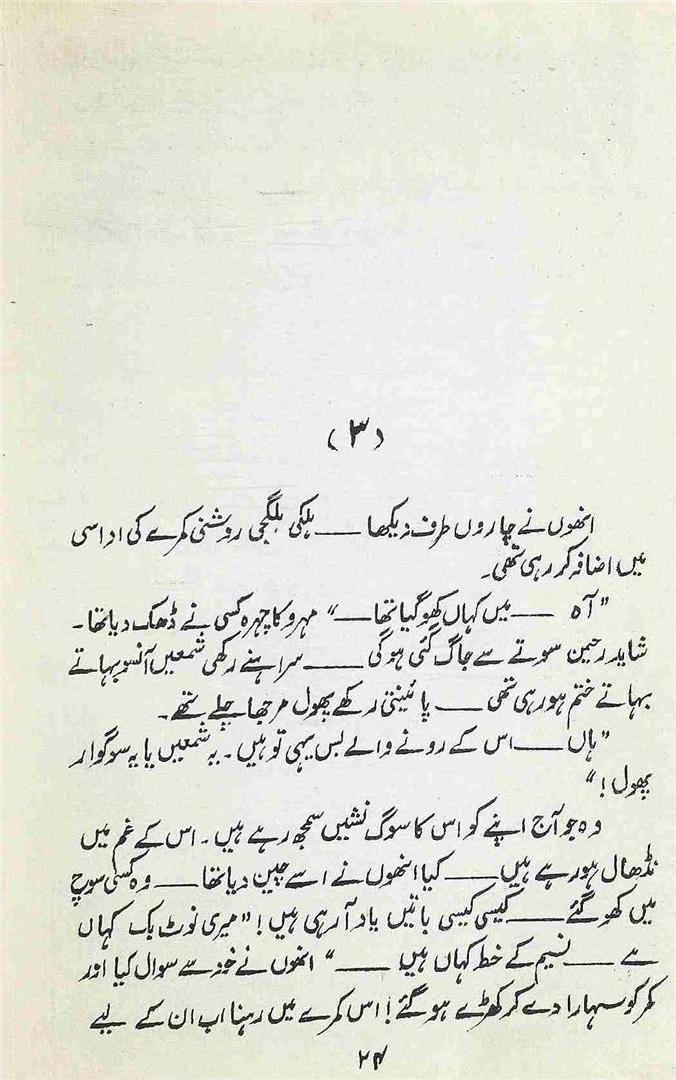 (۳)
انھوں نے چاروں طرف دیکھا ــــ ہلکی ہلگجی روشنی کمرے کی اداسی
میں اضافہ کر رہی تھی۔
"آہ ــــ میں کہاں کھو گیا تھا ــــ" مہرو کا چہرہ کسی نے ڈھک دیا تھا۔
شاید رحیمن سوتے سے جاگ گئی ہوگی ــــ سراہنے رکھی شمعیں آنسو بہاتے
بہاتے ختم ہو رہی تھی ــــ پائینتی رکھے پھول مرجھا چلے تھے۔
"ہاں ــــ اس کے رونے والے بس یہی تو ہیں۔ یہ شمعیں یا یہ سوگوار
پھول!"
وہ جو آج اپنے کو اس کا سوگ نشیں سمجھ رہے ہیں۔ اس کے غم میں
نڈھال ہو رہے ہیں ــــ کیا انھوں نے اسے چین دیا تھا ــــ وہ کسی سوچ
میں کھو گئے ــــ کیسی کیسی باتیں یاد آ رہی ہیں! "میری نوٹ بک کہاں
ہے ــــ نسیم کے خط کہاں ہیں ــــ" انھوں نے خود سے سوال کیا اور
کمر کو سہارا دے کر کھڑے ہو گئے! اس کمرے میں رہنا اب ان کے لیے